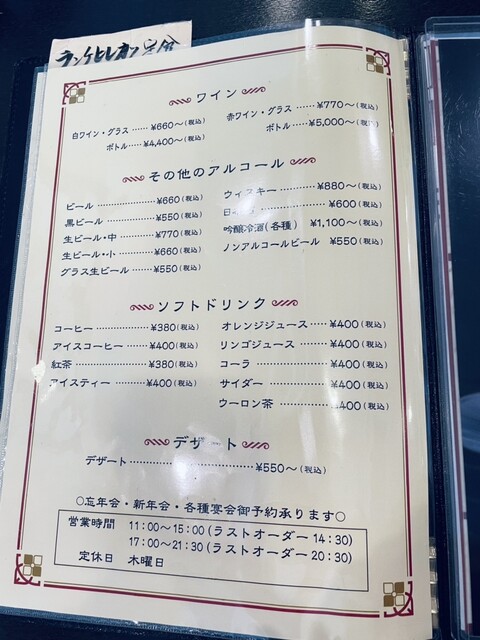 ワイン
白ワイン・グラス …… ¥660〜(税込)
ボトル …… ¥4,400〜(税込)
赤ワイン・グラス …… ¥770〜(税込)
ボトル …… ¥5,000〜(税込)
その他のアルコール
ビール …………… ¥660(税込)
黒ビール ………… ¥550(税込)
生ビール・中 ……… ¥770(税込)
生ビール・小 ……… ¥660(税込)
グラス生ビール …… ¥550(税込)
ウィスキー ………… ¥880〜(税込)
………… ¥600(税込)
吟醸冷酒(各種) ¥1,100〜(税込)
ノンアルコールビール ¥550(税込)
ソフトドリンク
コーヒー …………… ¥380(税込)
アイスコーヒー …… ¥400(税込)
紅茶 ………………… ¥380(税込)
アイスティー ……… ¥400(税込)
オレンジジュース …… ¥400(税込)
リンゴジュース ……… ¥400(税込)
コーラ ……………… ¥400(税込)
サイダー …………… ¥400(税込)
ウーロン茶 ………… ¥400(税込)
デザート
デザート …………………… ¥550〜(税込)
○忘年会・新年会・各種宴会御予約承ります○
営業時間 11：00〜15：00(ラストオーダー 14：30)
17：00〜21：30(ラストオーダー 20：30)
定休日 木曜日